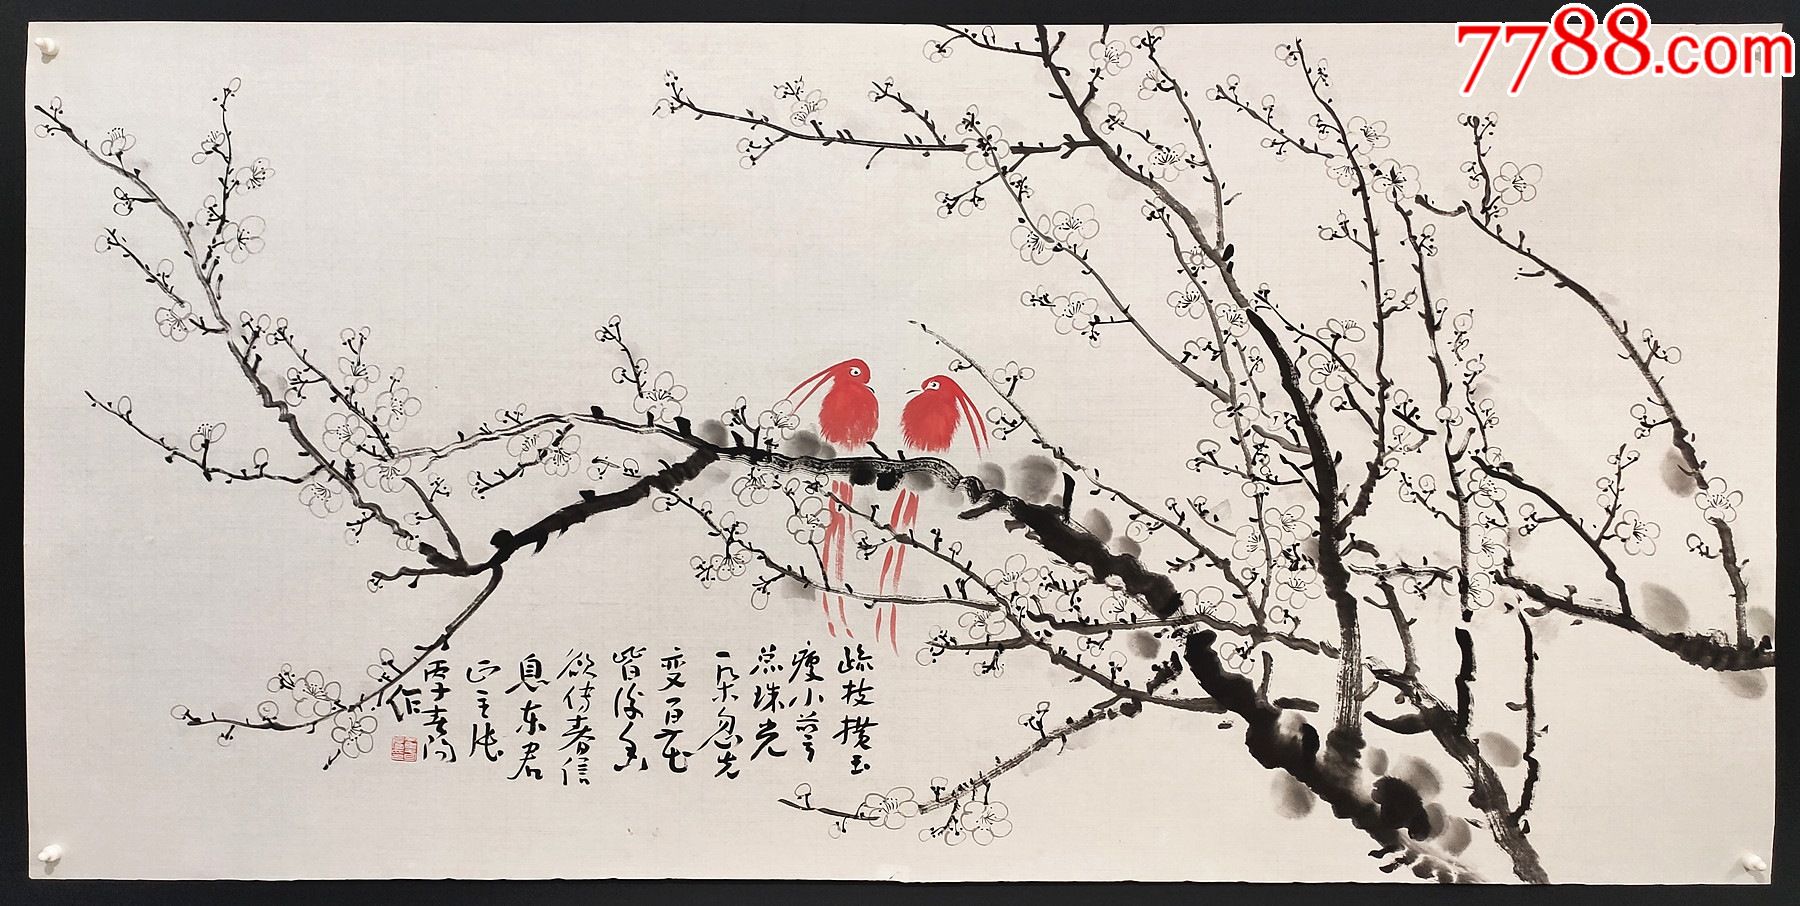 7788.com
疏枝横玉
瘦小萼
点珠光
一朵忽先
变百花
皆後香
欲传春信
息东君
正主张
丙子春
作